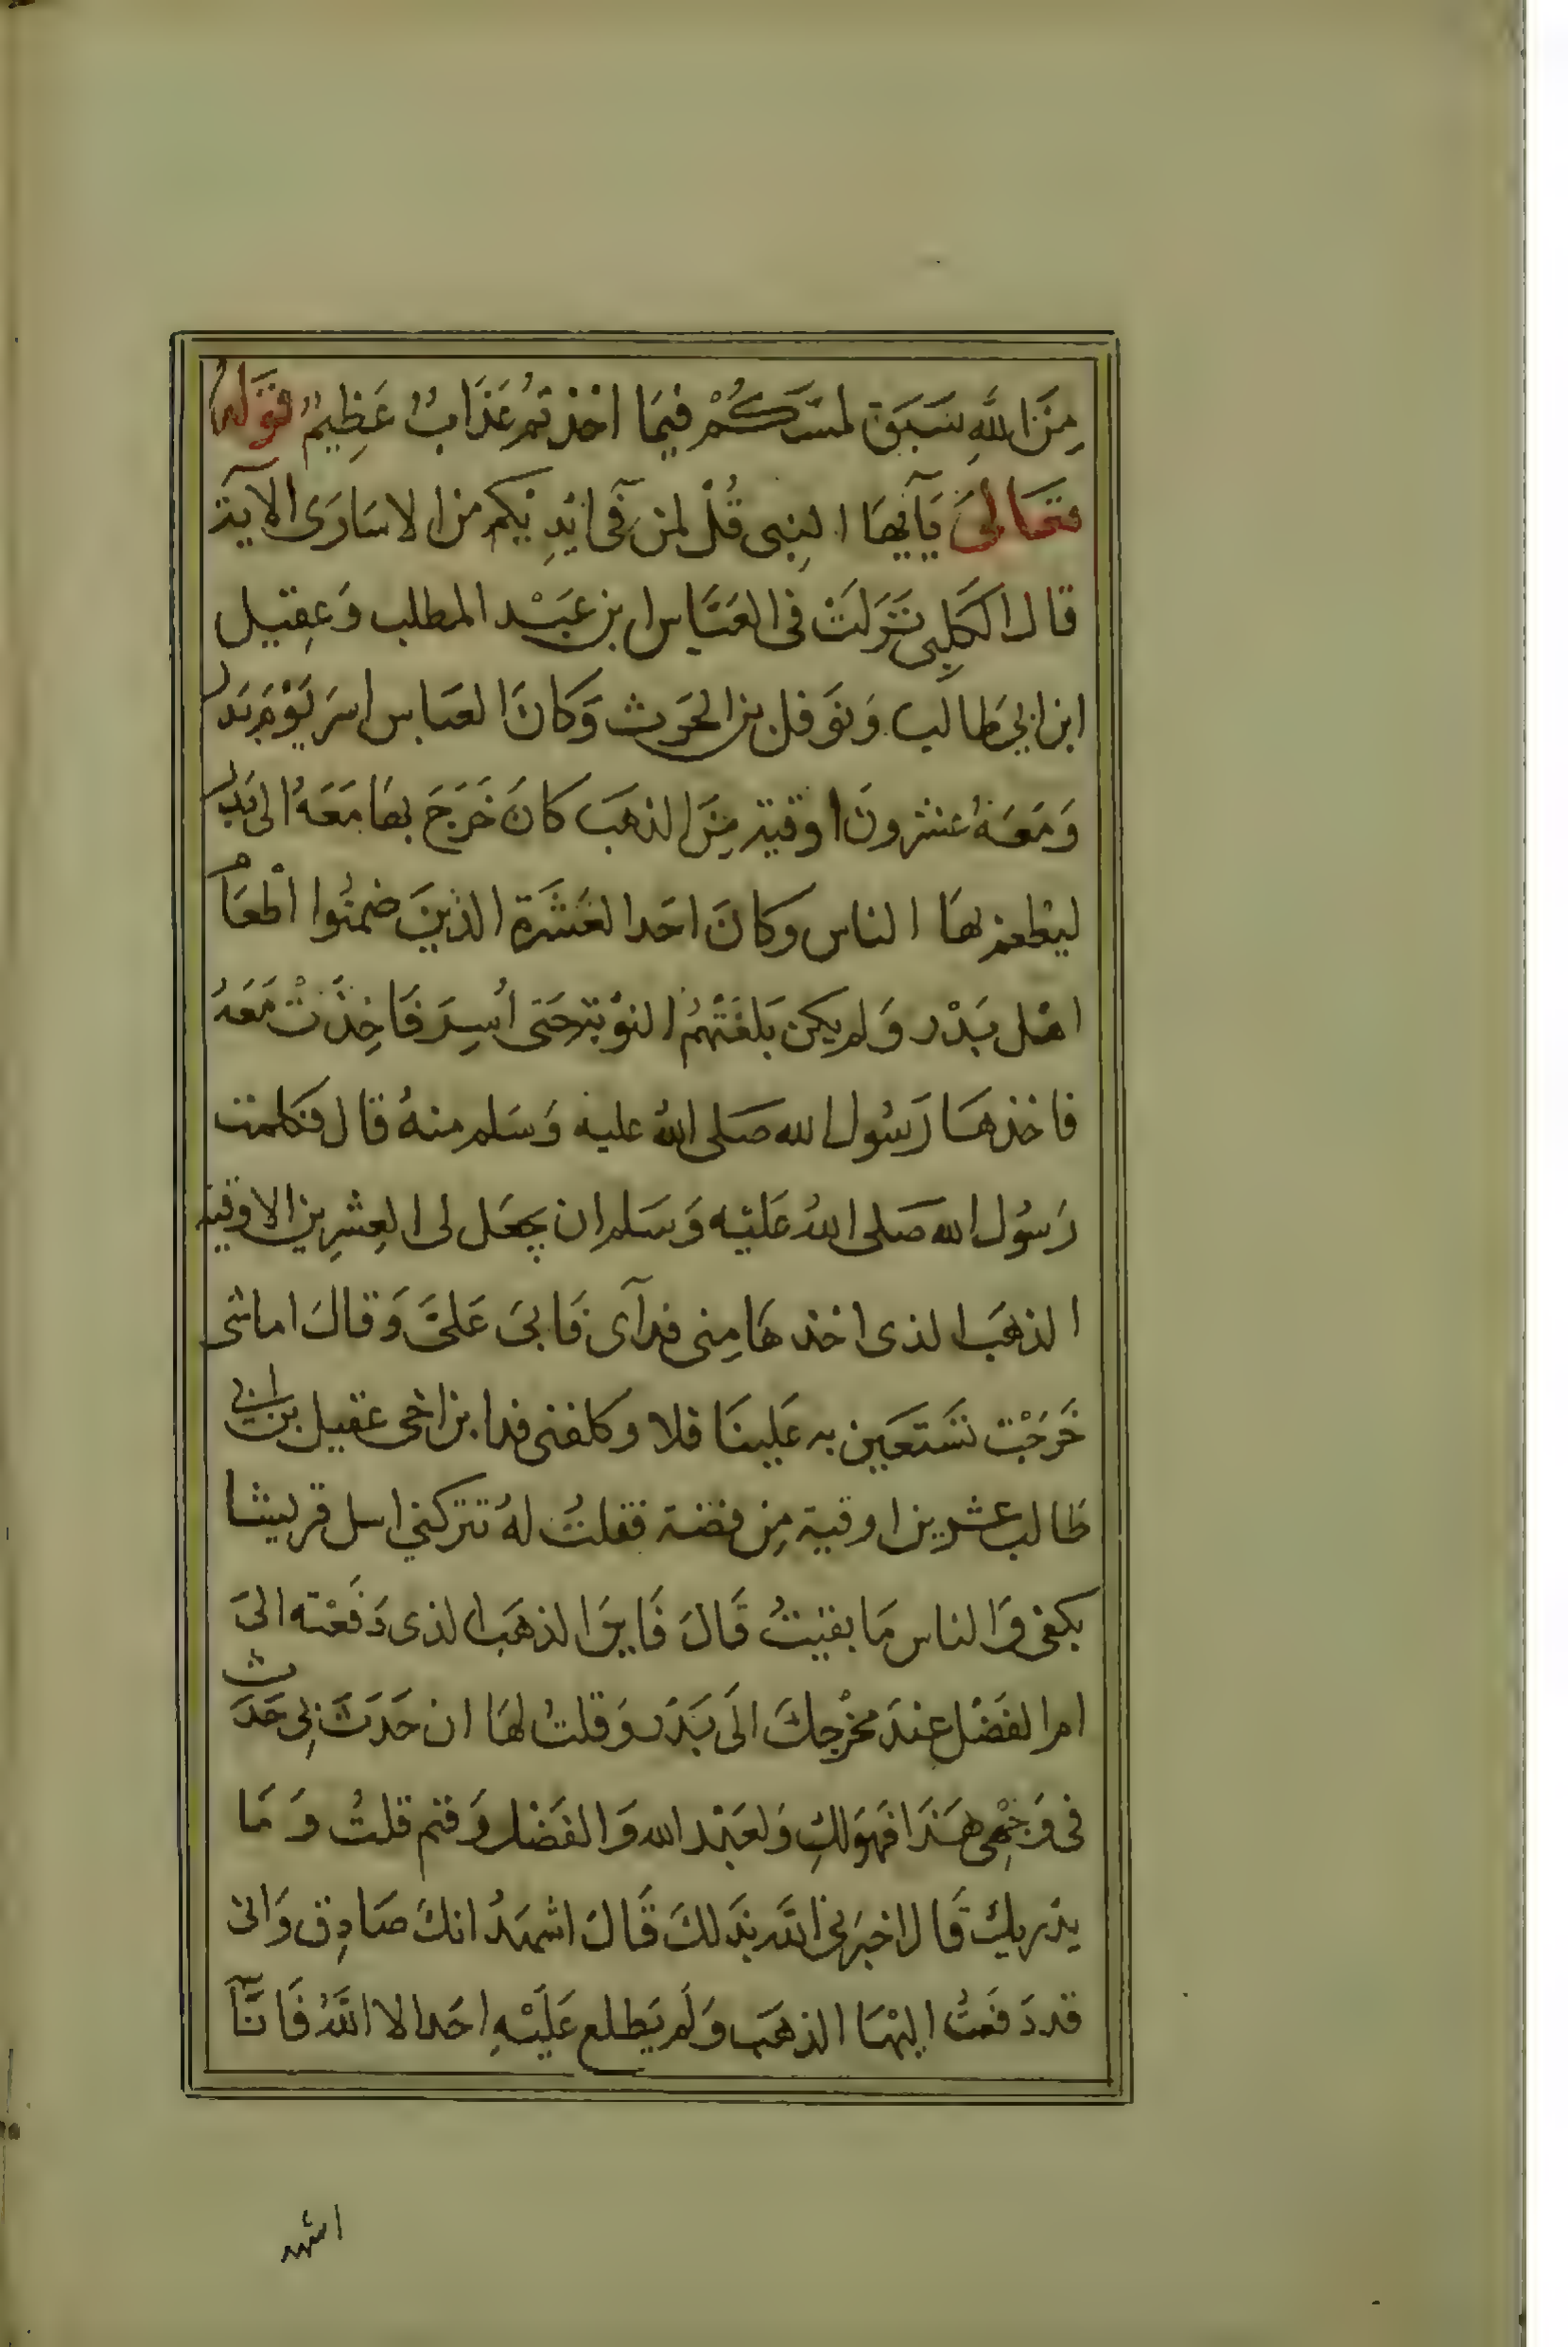 مِنَ اللهِ سَبَقَ لمسَّكُمْ فيمَا اخذتم عَذَابٌ عَظِيمٌ قوَلهُ
تعَالىَ يَآيهَا النبى قُلْ لمن فى ايْدِيْكم من الاسَارَى الآية
قال الكَلِبى نَزَلَتْ فى العَبَّاس ابن عَبْد المطلب وَعِقيل
ابن ابى طَالب وَنوَفل بن الحَرث وَكانَ العَباس اسَرَ يَوْمَ بَدر
وَمَعَهُ عشرونَ اوقية مِنَ الذهَب كانَ خَرَجَ بهَا مَعَهُ الى بَدر
ليُطعم بهَا الناس وكانَ احَد العَشَرَةِ الذينَ ضمنُوا اطْعَام
اهْل بَدْر وَلم يكن بَلغَتْهُمُ النوْبة حَتى أُسِرَ فَاخِذَتْ مَعَهُ
فاخذهَا رَسُول الله صَلى اللهُ عليه وَسَلم منهُ قال فكلمت
رَسُول الله صَلى اللهُ عَليْه وَسَلم ان يجعَل لى العِشرِين الاوقية
الذهَب الذى اخذهَا مِنى فدآى فَابىَ عَلىَّ وَقالَ اما شى
خَرَجْت تسَتَعين به عَلينَا فلا وكلفنى فدا بن اخى عقيل بن ابى
طالب عشرين اوقية مِن فضة فقلتُ لهُ تتركنى اسل قريشا
بكفى وَالناس مَا بقيتُ قَالَ فَاينَ الذهَب الذى دَفَعْته الىَ
ام الفَضْل عندَ مخْرجكَ الَى بَدْر وَقلتُ لهَا ان حَدَثَ بِى حَدَث
فى وَجْهِى هَذَا فهوَ لكِ وَلعَبْد الله وَالفَضْل وَقثم قلتُ وَمَا
يدْريك قَال اخبرَنى اللهُ بذَلكَ قَالَ اشهَدُ انكَ صَادِق وَانى
قد دَفعتُ اليْهَا الذهَب وَلَم يَطلع عَلَيْهِ احَد الا اللهُ فَانَآ
اشهد